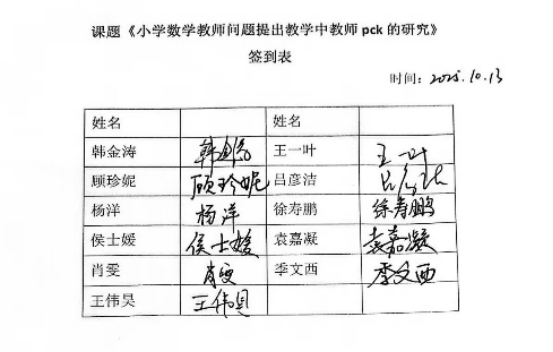 课题《小学数学教师问题提出教学中教师 pck 的研究》
签到表
时间：2025.10.13
姓名 姓名
韩金涛 韩金涛 王一叶 王一叶
顾珍妮 顾珍妮 吕彦洁 吕彦洁
杨洋 杨洋 徐寿鹏 徐寿鹏
侯士媛 侯士媛 袁嘉凝 袁嘉凝
肖雯 肖雯 季文西 季文西
王伟昊 王伟昊